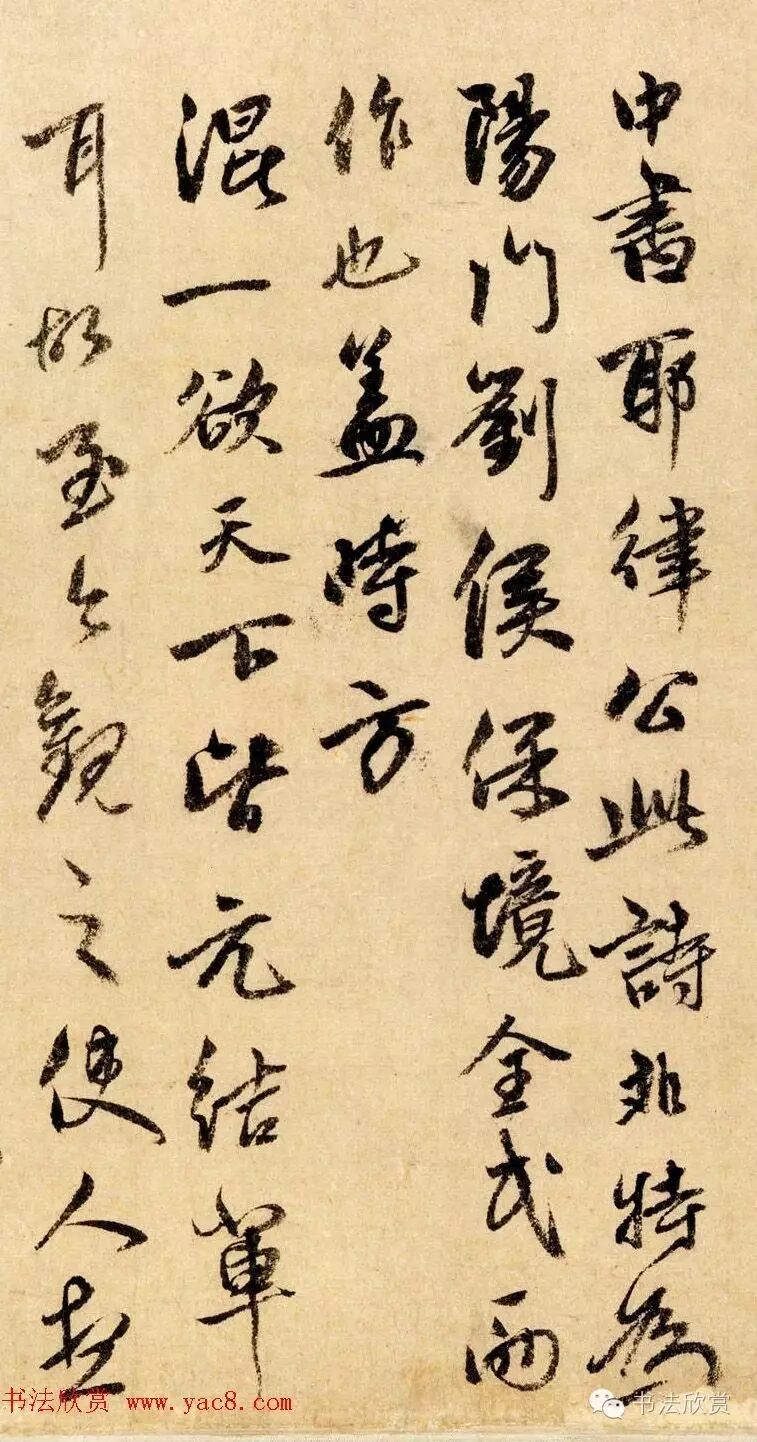 中書耶律公此詩非特為
陽門劉侯保境全民而
作也蓋時方
混一欲天下皆元結輩
耳故至今觀之使人
书法欣赏 www.yac8.com
书法欣赏